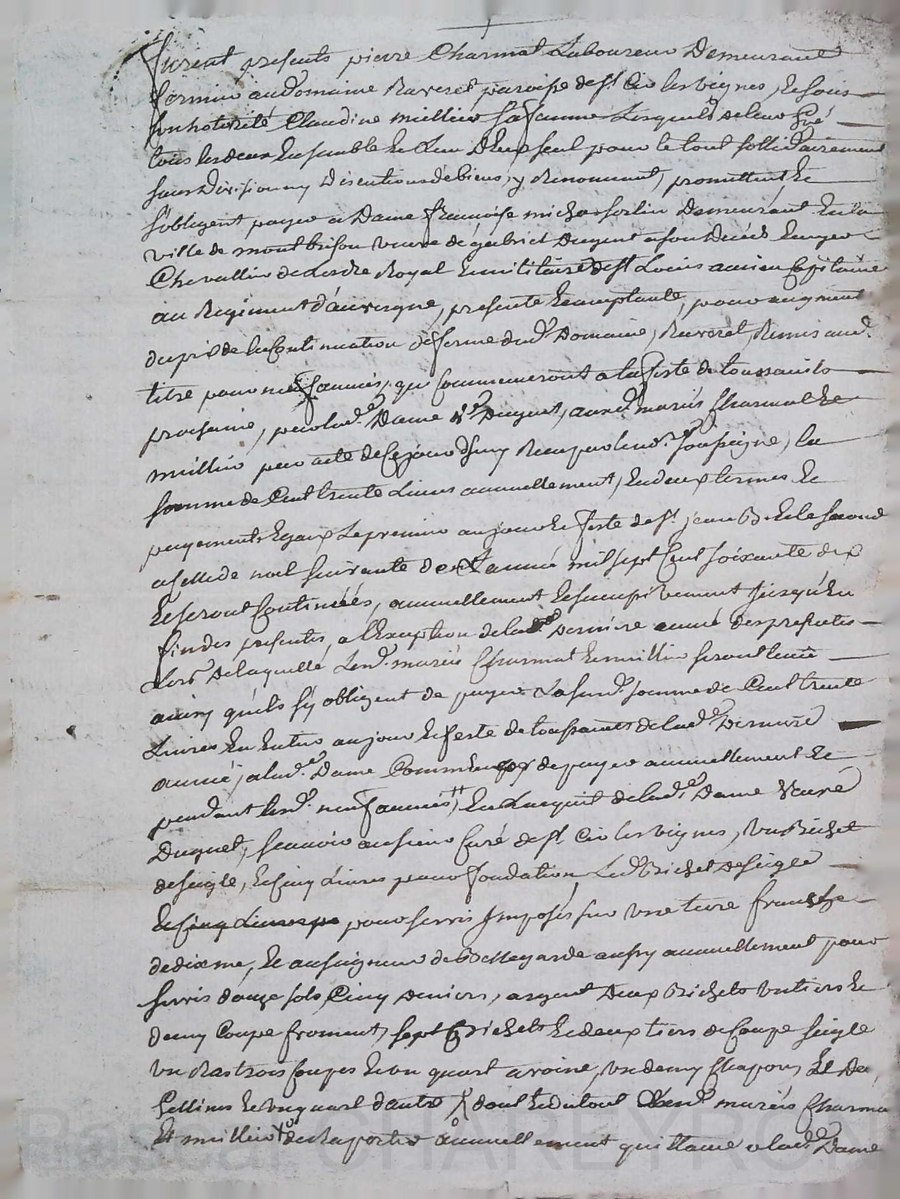 furent presents pierre Charmat Laboureur Demeurant
fermier au Domaine Raveret paroisse de st Cir les vignes, Et sous
son hotorité Claudine millier sa femme Lesquels de leur gré
tous les deux Ensemble Et L'un D'Eux seul pour le tout sollidairement
sans Division ny Discutions de biens, y Renoncent, promettent Et
s'obligent payer a Dame françoise michar forlin Demeurant En la
ville de montbrison veuve de gabriel Duguet a son Décès Ecuyer
Chevallier de Lordre Royal Et militaire de st Louis ancien Capitaine
au Regiment d'auvergne, presente Et acceptante, pour augment
du prix de la Continuation de ferme dud. Domaine, Raveret, Remis aud.
titre pour neuf années, qui Commenceront a la feste de toussaints
prochaine, par lad. Dame Ve Duguet, auxd. mariés Charmat Et
millier par acte de Ce jourd'huy Reçu par led. soussigné, la
somme de Cent trente Livres annuellement, En deux termes Et
payements Egaux Le premier au jour Et feste de st jean B. Et le second
a Celle de noel suivante de L'année mil sept Cent soixante dix
Et seront Continués, annuellement Et sempiternent jusqu'En
fin des presentes, a l'Exception de la Derniere année des presentes
Lors De laquelle, Lesd. mariés Charmat Et millier seront tenus
ainsy qu'ils s'y obligent de payer La susd. somme de Cent trente
Livres En Entier au jour Et feste de toussaints de lad. Derniere
année, a lad. Dame Comme de payer annuellement Et
pendant lesd. neuf années, En L'acquit de lad. Dame veuve
Duguet, sçavoir au sieur Curé de st Cir les vignes, un Bichet
de seigle, Et Cinq Livres pour fondation, Led. Bichet de seigle
pour servis Imposés sur une terre franche
de dixme, Et au seigneur de Bellegarde aussy annuellement pour
servis douze sols Cinq deniers, argent Deux Bichets un tiers Et
demy Coupe froment, sept Bichets Et deux tiers de Coupe seigle
un Ras trois Coupes Et un quart avoine, un demy Chapon, Et De
gellines Et un quart d'autre, dont Et du tout Lesd. mariés Charmat
Et millier Raporter annuellement quittance a lad. Dame
Pascal CHAREYRON